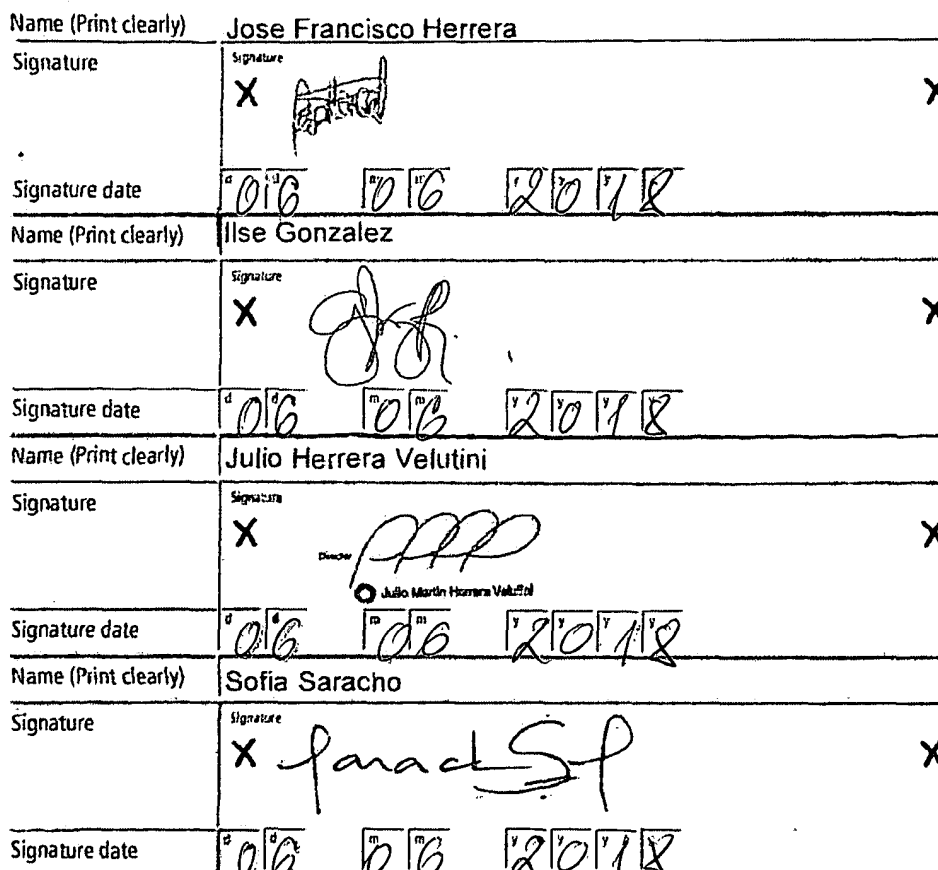 Name (Print clearly) Jose Francisco Herrera
Signature Signature
X X
Signature date d d m m y y y y 06 06 2018
Name (Print clearly) Ilse Gonzalez
Signature Signature
X X
Signature date d d m m y y y y 06 06 2018
Name (Print clearly) Julio Herrera Velutini
Signature Signature
X X
Director
Julio Martin Herrera Velutini
Signature date d d m m y y y y 06 06 2018
Name (Print clearly) Sofia Saracho
Signature Signature
X X
Signature date d d m m y y y y 06 06 2018